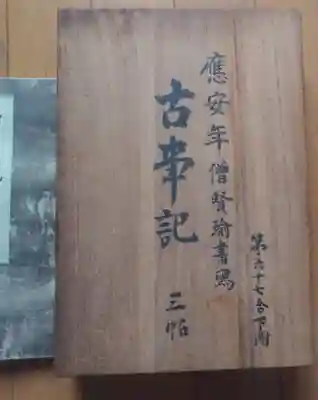 應安年僧賢瑜書寫
古事記 三帖
第六十七合下凾